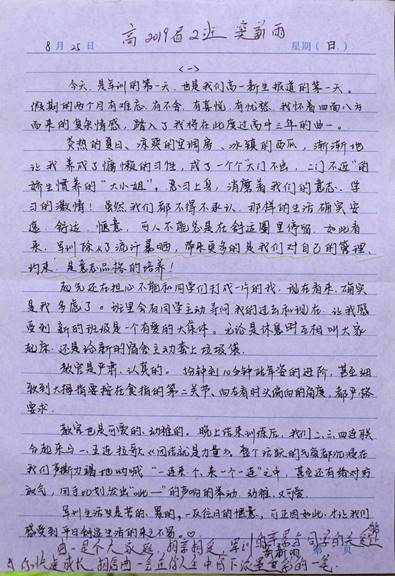 高2019届2班 窦新雨
8月25日 星期(日)
<一>
今天,是军训的第一天,也是我们高一新生报道的第一天。
假期的两个月有难忘,有不舍,有喜悦,有忧愁。我怀着四面八方
而来的复杂情感,踏入了我将在此度过高中三年的曲一。
炎热的夏日、凉爽的空调房、冰镇的西瓜,渐渐地
让我养成了慵懒的习性,成了一个个"大门不出,二门不迈"的
娇生惯养的"大小姐"。恶习上身,消磨着我们的意志、学
习的激情!虽然我们都不得不承认,那样的生活确实安
逸、舒适、惬意,可人不能总是在舒适圈里停留。如此看
来,军训除了流汗暴晒,带来更多的是我们对自己的管理、
约束,是意志品格的培养!
起先还在担心不能和同学们打成一片的我,现在看来,确实
是我多虑了。班里会有同学主动寻问我的过去和现在,让我感
受到新的班级是一个有爱的大集体。无论是休息时互相叫大家
起床,还是给新的宿舍主动套上垃圾袋。
教官是严肃、认真的。5分钟到10分钟站军姿的进阶,甚至细
致到大拇指要按在食指的第二关节,向右看时头偏向的角度,都严格
要求。
教官也是可爱的、幼稚的。晚上结束训练后,我们二、三、四连联
合起来与一、五连拉歌,《团结就是力量》,整个活跃的气氛都沉浸在
我们声嘶力竭地呐喊"一连来个,来一个一连"之中,甚至还有给对方
放气,用手比划发出"呲一"的声响的举动,幼稚,又可爱。
军训生活虽是苦的、累的,一反往日的惬意,可正因如此,才让我们
感受到平日舒适生活的来之不易。
曲一是个大家庭,相亲相爱,
你快速成长,相信曲一会在你人生中留下浓墨重彩的一笔。